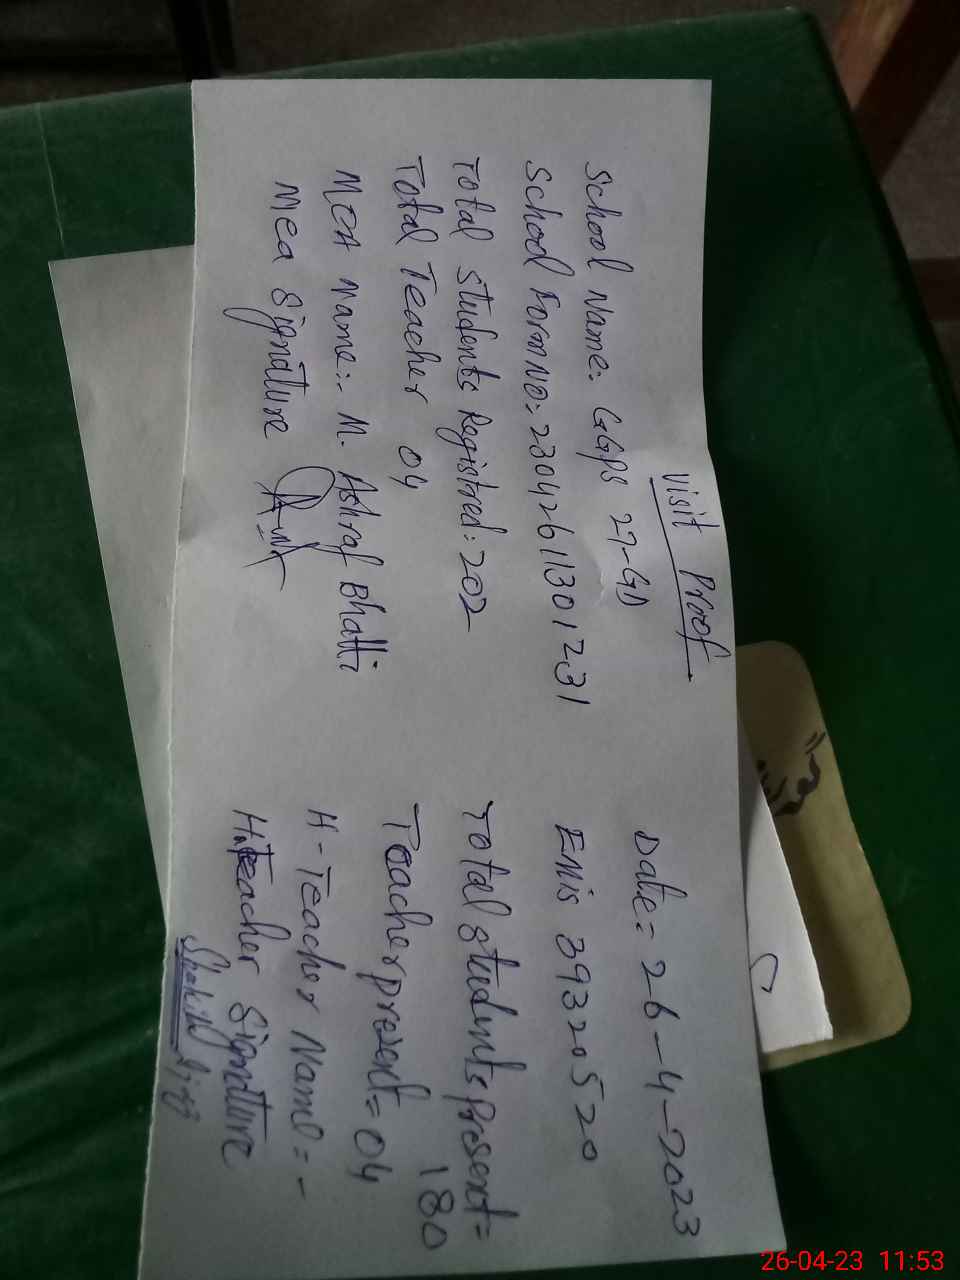 Visit Proof
School Name: GGPS 27-GD
Date = 26-4-2023
School Form NO: 23042611301231
Emis 39320520
Total Students Registred: 202
Total students present = 180
Total Teacher 04
Teacher present = 04
MEA Name:- M. Ashraf Bhatti
H-Teacher Name = -
Mea Signature
H.Teacher Signature
26-04-23 11:53